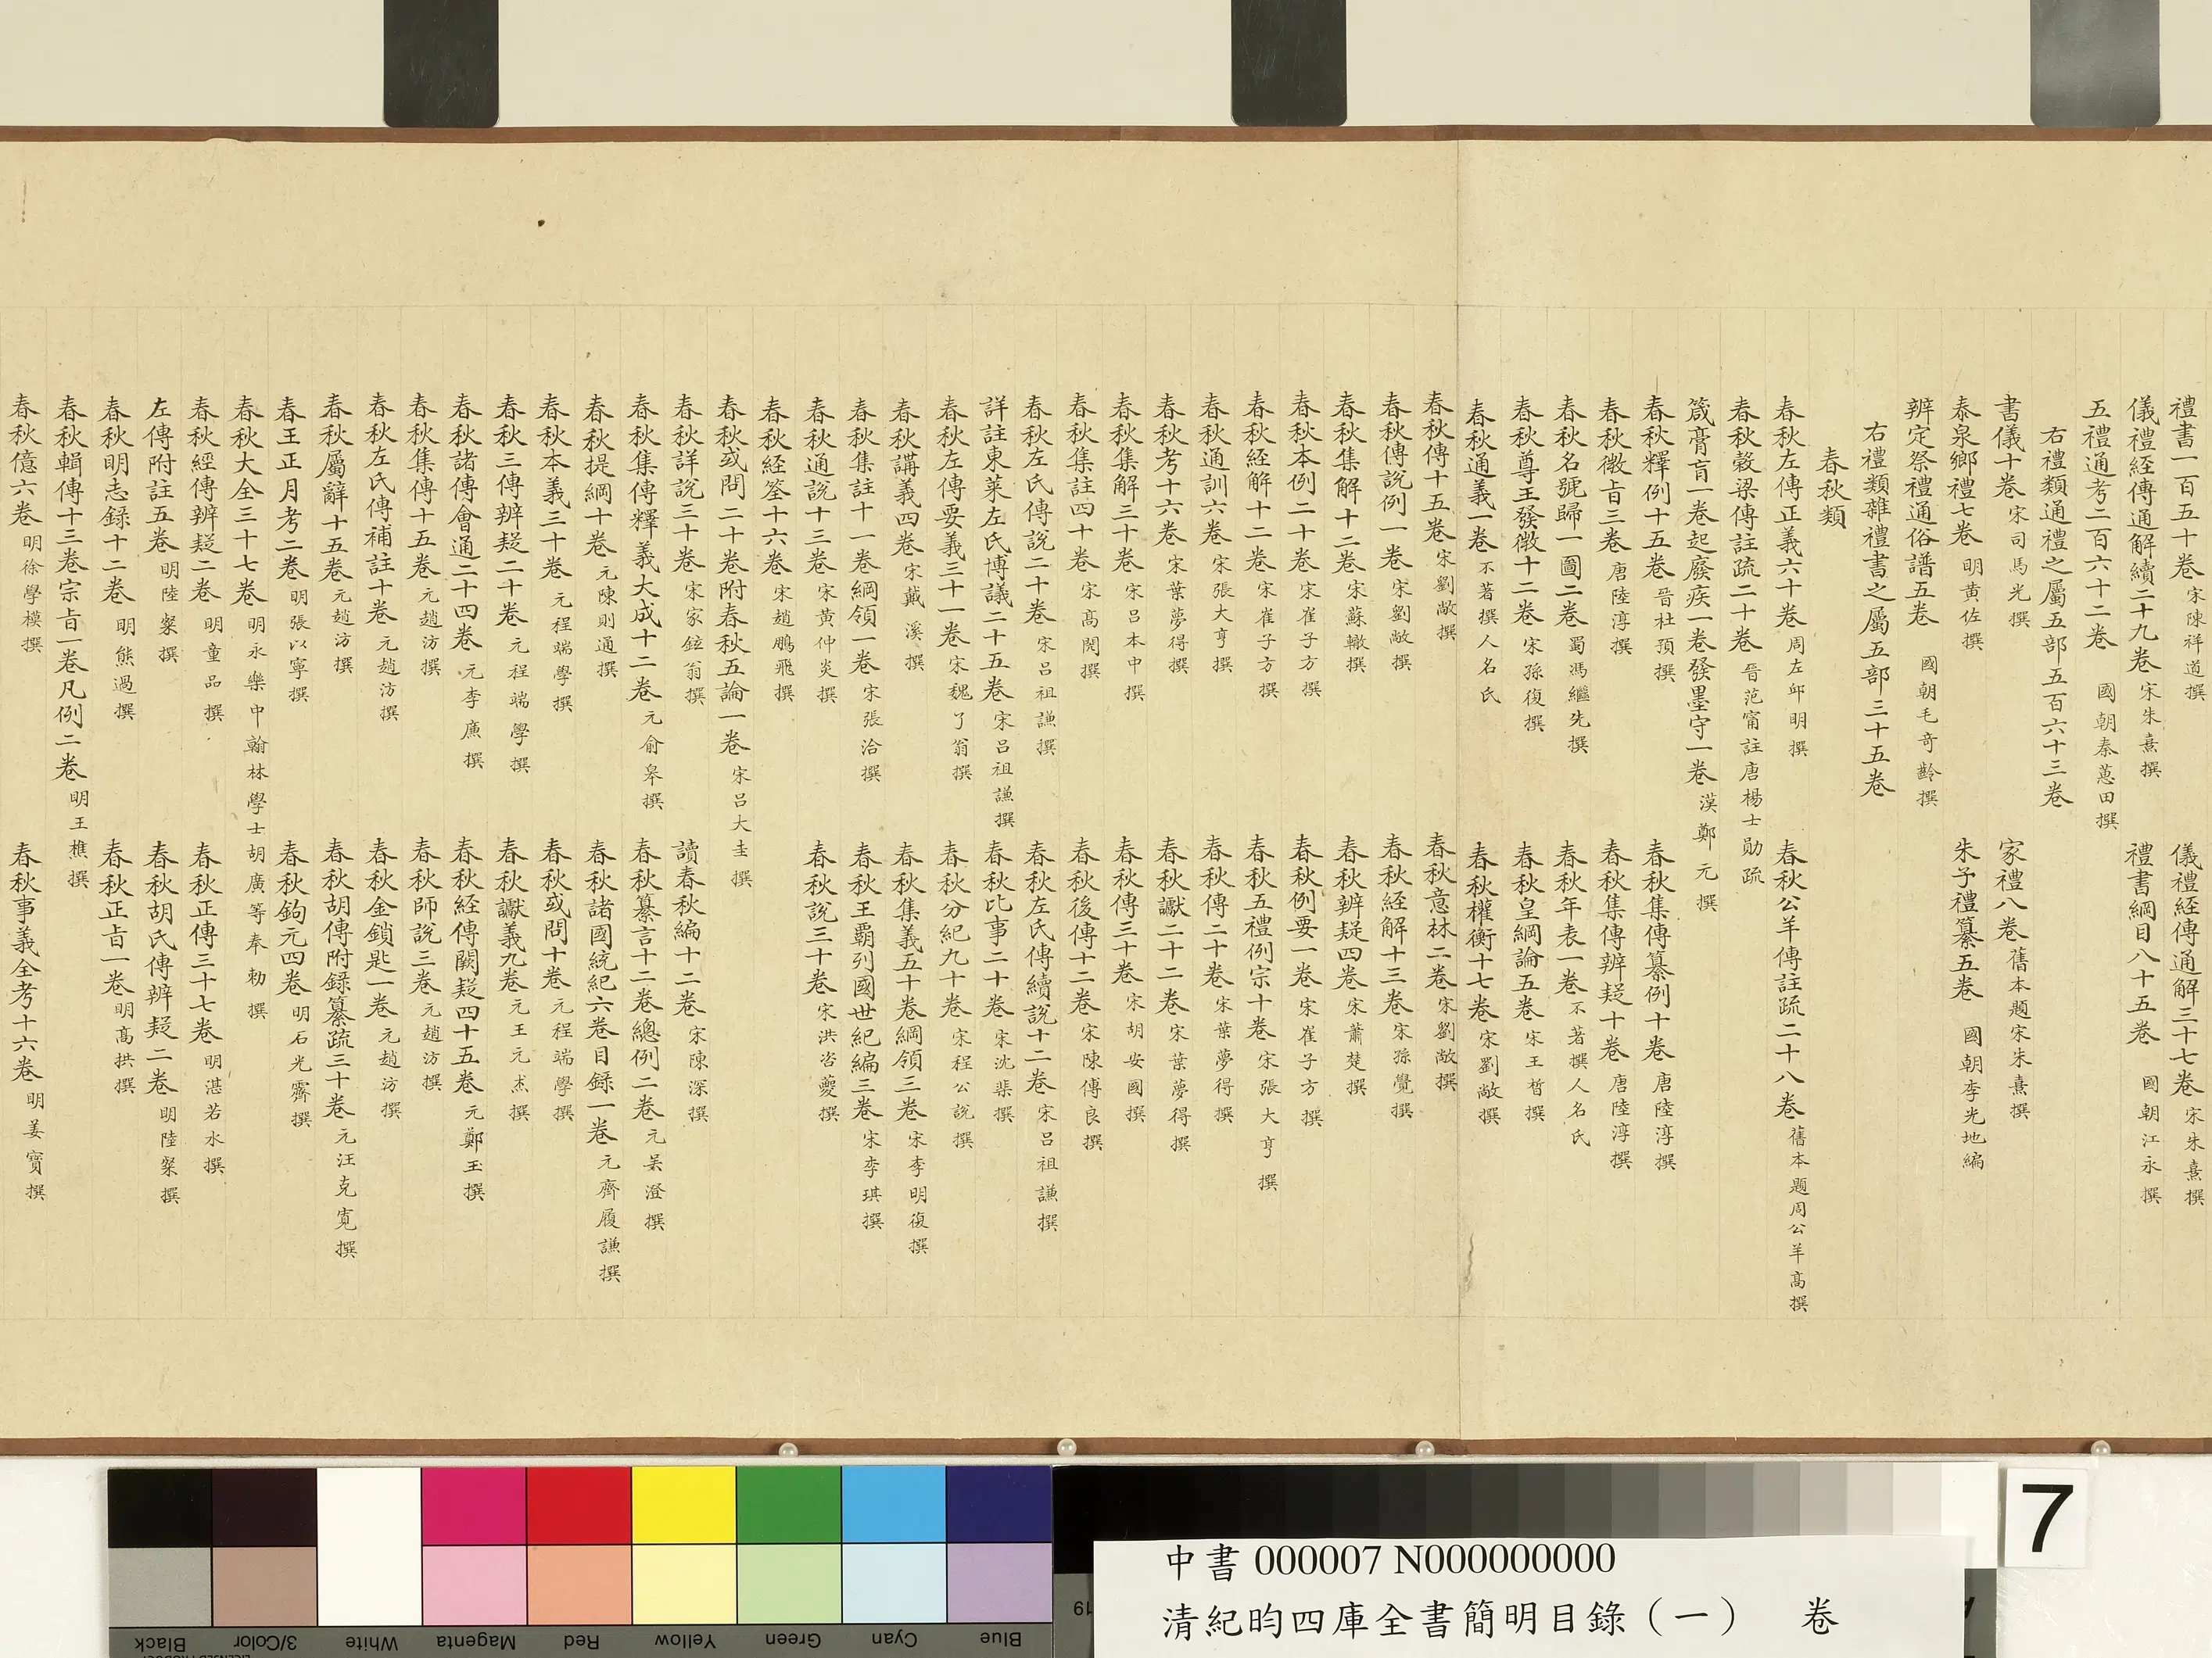 禮書一百五十卷 宋陳祥道撰 儀禮經傳通解三十七卷 宋朱熹撰
儀禮經傳通解續二十九卷 宋朱熹撰 禮書綱目八十五卷 國朝江永撰
五禮通考二百六十二卷 國朝秦蕙田撰
右禮類通禮之屬五部五百六十三卷
書儀十卷 宋司馬光撰 家禮八卷 舊本題宋朱熹撰
泰泉鄉禮七卷 明黃佐撰 朱子禮纂五卷 國朝李光地編
辨定祭禮通俗譜五卷 國朝毛奇齡撰
右禮類雜禮書之屬五部三十五卷
春秋類
春秋左傳正義六十卷 周左邱明撰 春秋公羊傳註疏二十八卷 舊本題周公羊高撰
春秋穀梁傳註疏二十卷 晉范甯註唐楊士勛疏
箴膏肓一卷起廢疾一卷發墨守一卷 漢鄭元撰
春秋釋例十五卷 晉杜預撰 春秋集傳纂例十卷 唐陸淳撰
春秋微旨三卷 唐陸淳撰 春秋集傳辨疑十卷 唐陸淳撰
春秋名號歸一圖二卷 蜀馮繼先撰 春秋年表一卷 不著撰人名氏
春秋尊王發微十二卷 宋孫復撰 春秋皇綱論五卷 宋王晳撰
春秋通義一卷 不著撰人名氏 春秋權衡十七卷 宋劉敞撰
春秋傳十五卷 宋劉敞撰 春秋意林二卷 宋劉敞撰
春秋傳說例一卷 宋劉敞撰 春秋經解十三卷 宋孫覺撰
春秋集解十二卷 宋蘇轍撰 春秋辨疑四卷 宋蕭楚撰
春秋本例二十卷 宋崔子方撰 春秋例要一卷 宋崔子方撰
春秋經解十二卷 宋崔子方撰 春秋五禮例宗十卷 宋張大亨撰
春秋通訓六卷 宋張大亨撰 春秋傳二十卷 宋葉夢得撰
春秋考十六卷 宋葉夢得撰 春秋讞二十二卷 宋葉夢得撰
春秋集解三十卷 宋呂本中撰 春秋傳三十卷 宋胡安國撰
春秋集註四十卷 宋高閌撰 春秋後傳十二卷 宋陳傅良撰
春秋左氏傳說二十卷 宋呂祖謙撰 春秋左氏傳續說十二卷 宋呂祖謙撰
詳註東萊左氏博議二十五卷 宋呂祖謙撰 春秋比事二十卷 宋沈棐撰
春秋左傳要義三十一卷 宋魏了翁撰 春秋分紀九十卷 宋程公說撰
春秋講義四卷 宋戴溪撰 春秋集義五十卷綱領三卷 宋李明復撰
春秋集註十一卷綱領一卷 宋張洽撰 春秋王霸列國世紀編三卷 宋李琪撰
春秋通說十三卷 宋黃仲炎撰 春秋說三十卷 宋洪咨夔撰
春秋經筌十六卷 宋趙鵬飛撰
春秋或問二十卷附春秋五論一卷 宋呂大圭撰
春秋詳說三十卷 宋家鉉翁撰 讀春秋編十二卷 宋陳深撰
春秋集傳釋義大成十二卷 元俞皋撰 春秋纂言十二卷總例二卷 元吳澄撰
春秋提綱十卷 元陳則通撰 春秋諸國統紀六卷目録一卷 元齊履謙撰
春秋本義三十卷 元程端學撰 春秋或問十卷 元程端學撰
春秋三傳辨疑二十卷 元程端學撰 春秋讞義九卷 元王元杰撰
春秋諸傳會通二十四卷 元李廉撰 春秋經傳闕疑四十五卷 元鄭玉撰
春秋集傳十五卷 元趙汸撰 春秋師說三卷 元趙汸撰
春秋左氏傳補註十卷 元趙汸撰 春秋金鎖匙一卷 元趙汸撰
春秋屬辭十五卷 元趙汸撰 春秋胡傳附録纂疏三十卷 元汪克寬撰
春王正月考二卷 明張以寧撰 春秋鉤元四卷 明石光霽撰
春秋大全三十七卷 明永樂中翰林學士胡廣等奉勅撰
春秋經傳辨疑二卷 明童品撰 春秋正傳三十七卷 明湛若水撰
左傳附註五卷 明陸粲撰 春秋胡氏傳辨疑二卷 明陸粲撰
春秋明志録十二卷 明熊過撰 春秋正旨一卷 明高拱撰
春秋輯傳十三卷宗旨一卷凡例二卷 明王樵撰
春秋億六卷 明徐學模撰 春秋事義全考十六卷 明姜寶撰
7
中書 000007 N000000000
清紀昀四庫全書簡明目錄（一） 卷
Black 3/Color White Magenta Red Yellow Green Cyan Blue
19